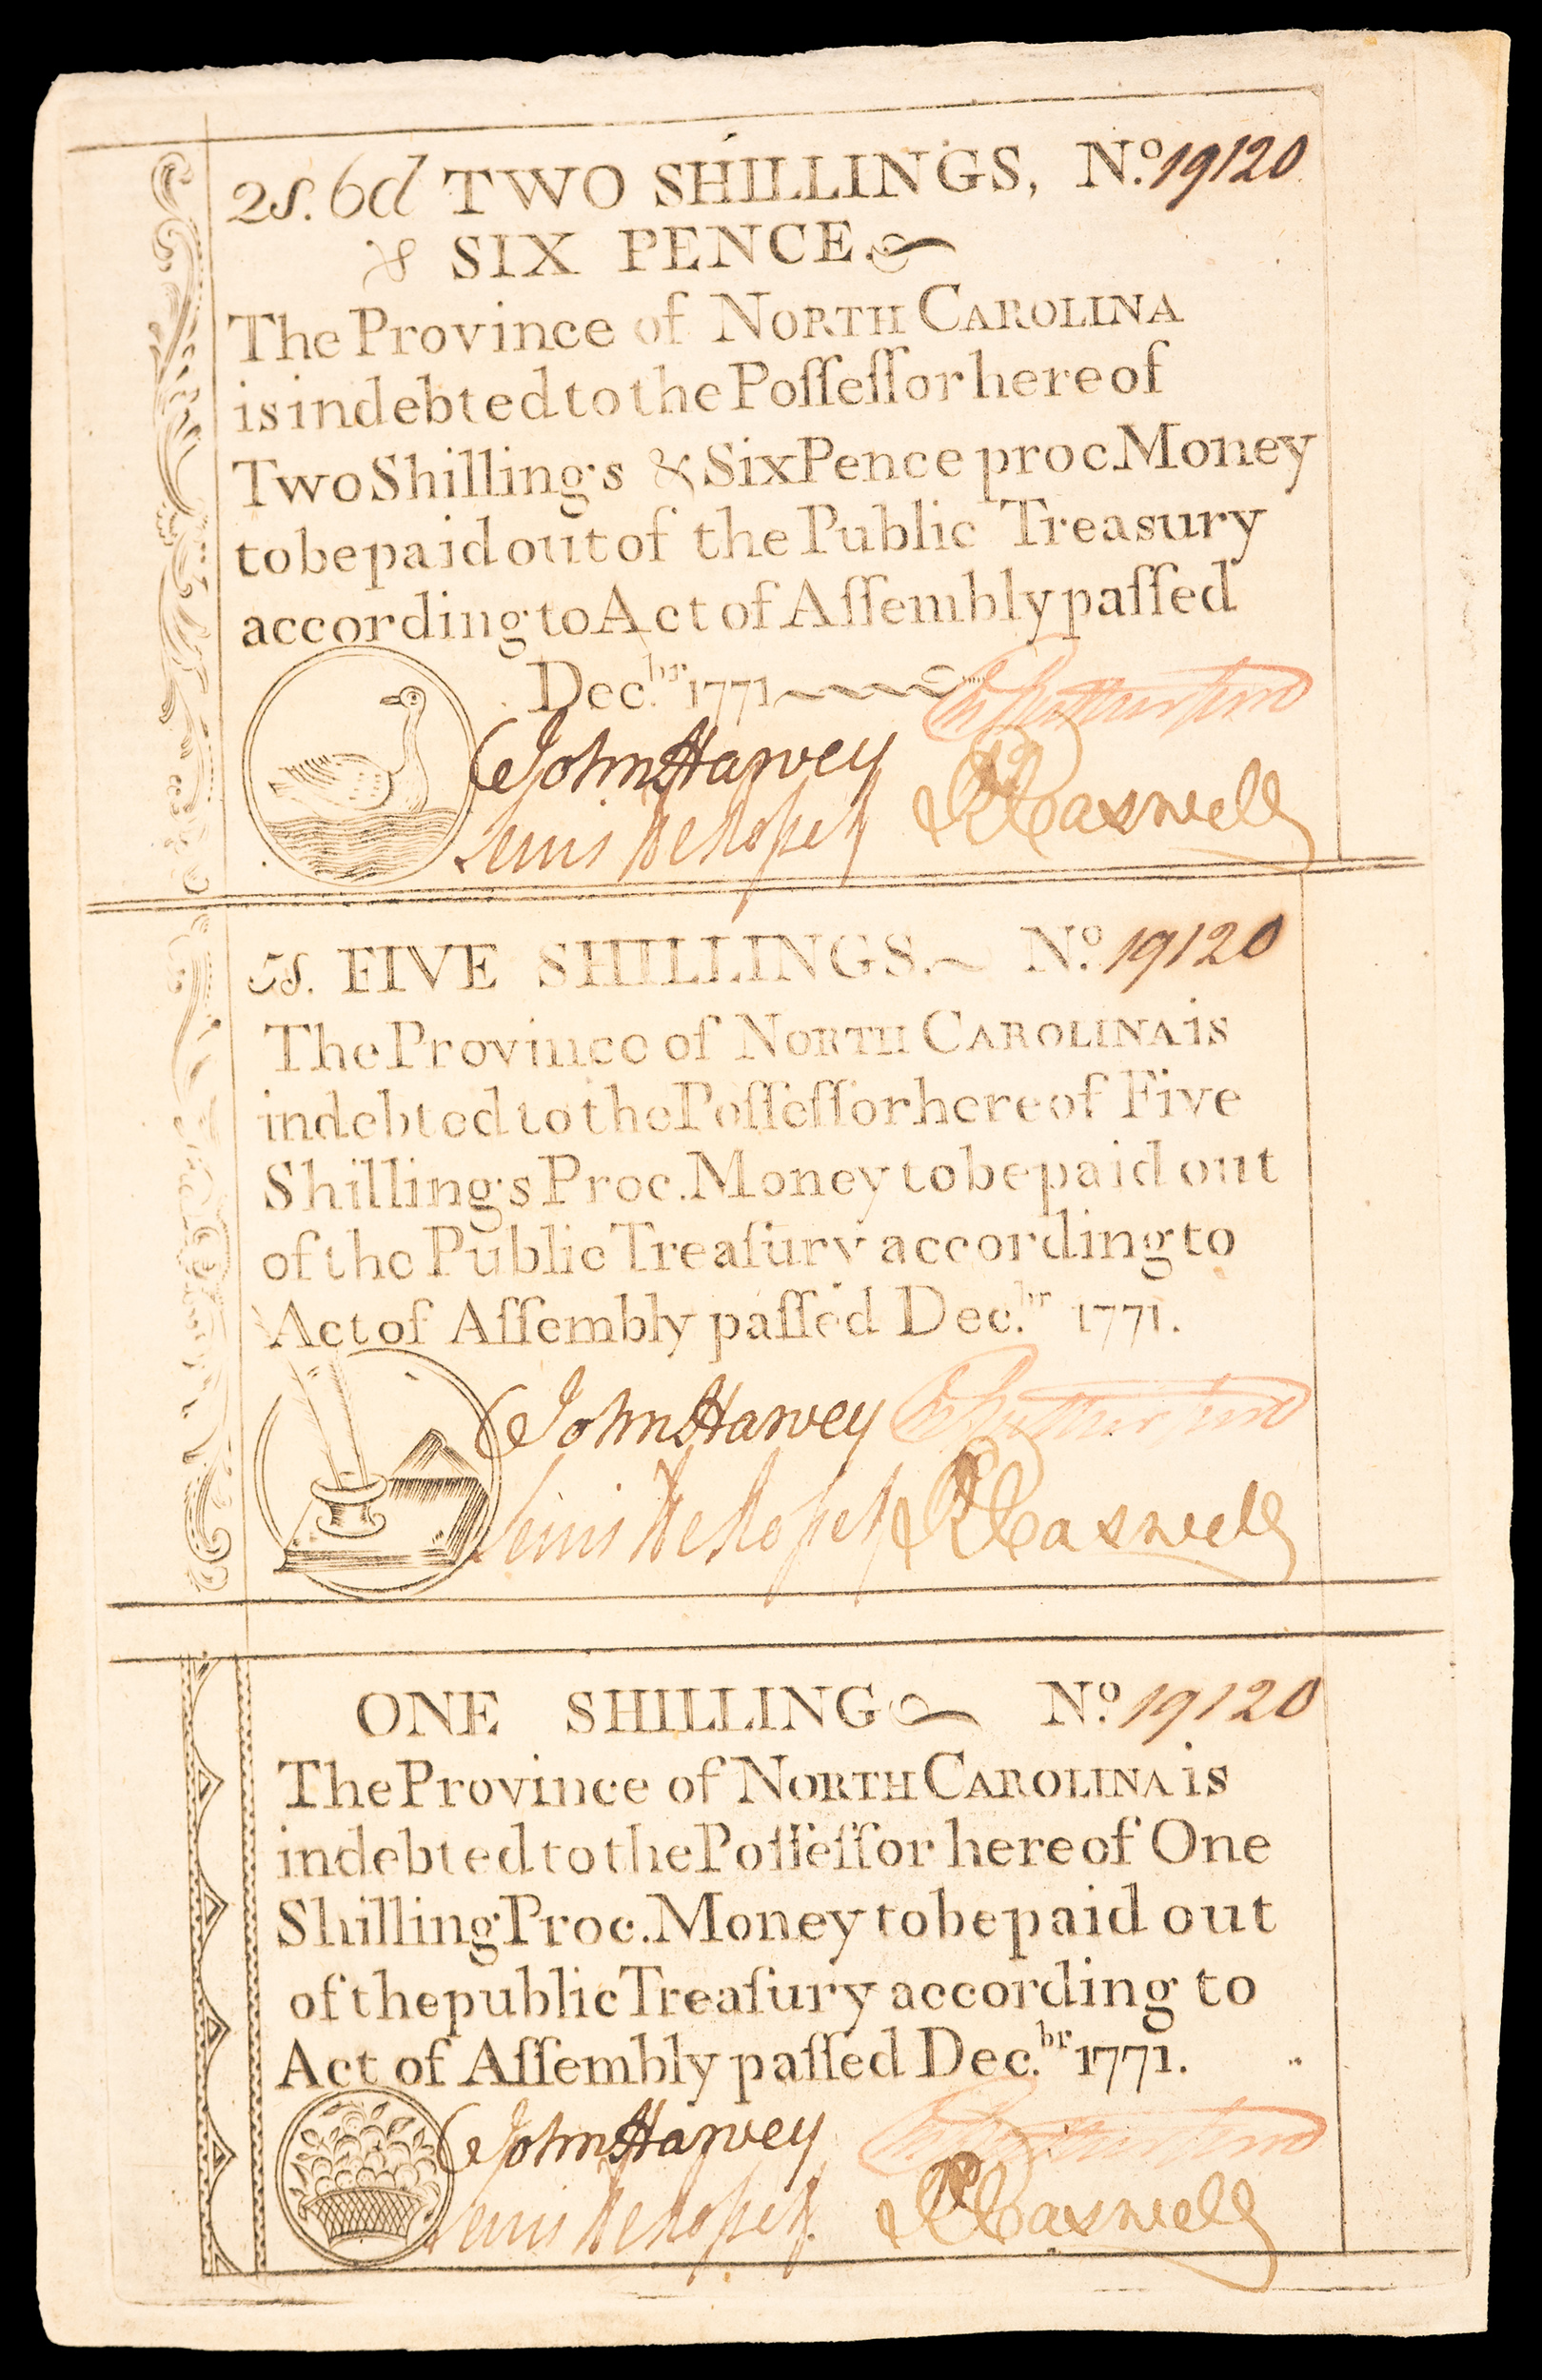 2s. 6d TWO SHILLINGS, Nº. 19120
& SIX PENCE
The Province of NORTH CAROLINA
is indebted to the Poſſeſſor hereof
Two Shillings & Six Pence proc. Money
to be paid out of the Public Treasury
according to Act of Aſſembly paſſed
Dec.br 1771
John Harvey
Lewis DeRosset R Caswell
5s. FIVE SHILLINGS. Nº. 19120
The Province of NORTH CAROLINA is
indebted to the Poſſeſſor hereof Five
Shillings Proc. Money to be paid out
of the Public Treaſury according to
Act of Aſſembly paſſed Dec.br 1771.
John Harvey
Lewis DeRosset R Caswell
ONE SHILLING Nº. 19120
The Province of NORTH CAROLINA is
indebted to the Poſſeſſor hereof One
Shilling Proc. Money to be paid out
of the public Treaſury according to
Act of Aſſembly paſſed Dec.br 1771.
John Harvey
Lewis DeRosset R Caswell